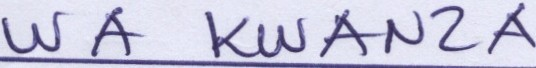 WA KWANZA